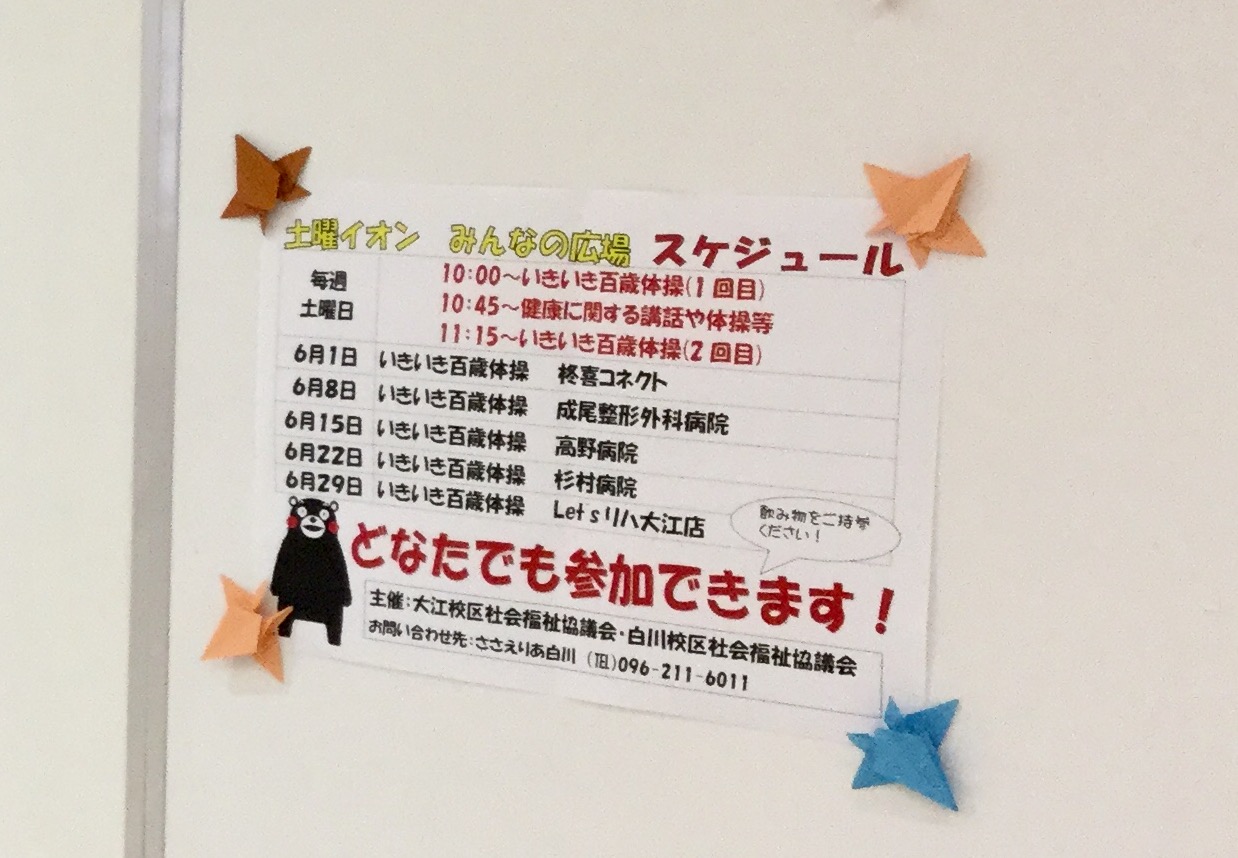 土曜イオン　みんなの広場　スケジュール
毎週
土曜日
10:00～いきいき百歳体操(1回目)
10:45～健康に関する講話や体操等
11:15～いきいき百歳体操(2回目)
6月1日 いきいき百歳体操 柊喜コネクト
6月8日 いきいき百歳体操 成尾整形外科病院
6月15日 いきいき百歳体操 高野病院
6月22日 いきいき百歳体操 杉村病院
6月29日 いきいき百歳体操 Let'sリハ大江店
飲み物をご持参
ください！
どなたでも参加できます！
主催：大江校区社会福祉協議会・白川校区社会福祉協議会
お問い合わせ先：ささえりあ白川 (℡)096-211-6011